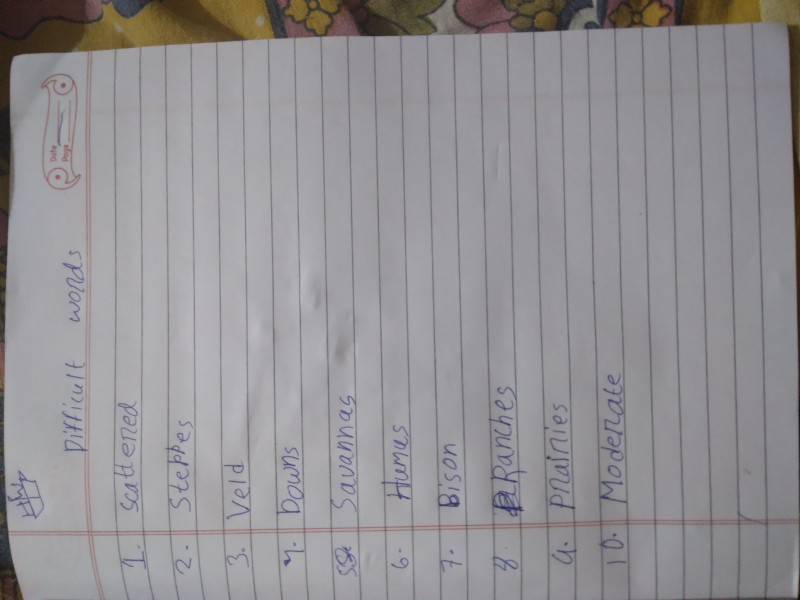 Date
Page
Difficult words
1. Scattered
2. Steppes
3. Veld
4. Downs
5. Savannas
6. Humus
7. Bison
8. Ranches
9. Prairies
10. Moderate